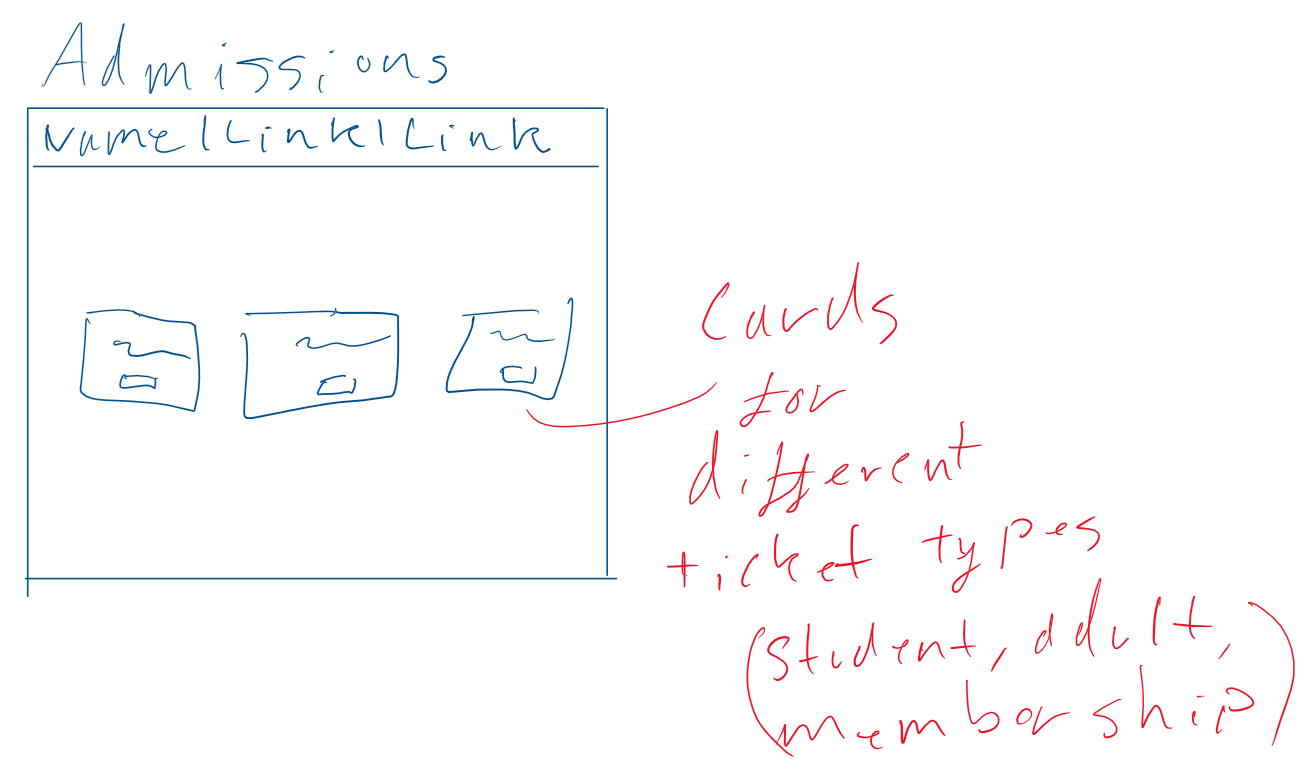 Admissions
Name | Link | Link
Cards
for
different
ticket types
(student, adult,
membership)